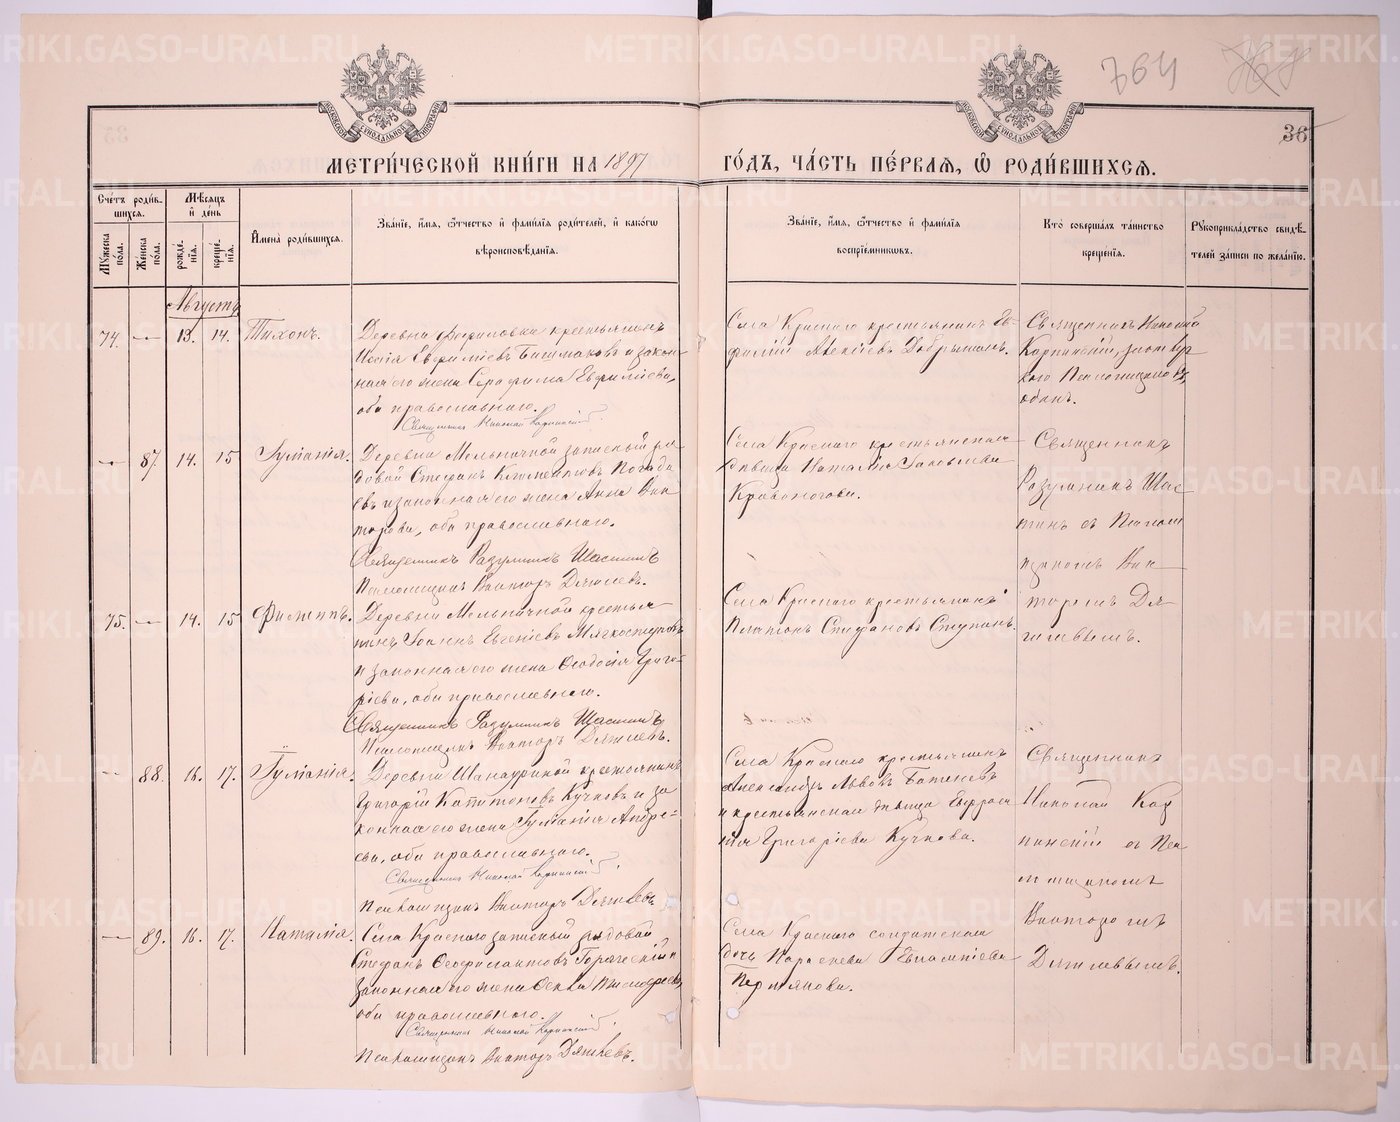 764
36
МЕТРИ́ЧЕСКОЙ КНИ́ГИ НА 1897 ГО́ДЪ, ЧА́СТЬ ПЕ́РВАѦ, Ѡ҆ РОДИ́ВШИХСѦ.
Сче́тъ роди́в-
шихсѧ.
Мꙋжеска по́ла.
Же́нска по́ла.
Мѣ́сѧцъ
и҆ де́нь
рожде́-
нїѧ.
креще́-
нїѧ.
И҆мена̀ роди́вшихсѧ.
Зва́нїе, и҆́мѧ, ѻ҆́тчество и҆ фами́лїѧ роди́телей, и҆ како́гѡ
вѣроисповѣ́данїѧ.
Зва́нїе, и҆́мѧ, ѻ҆́тчество и҆ фами́лїѧ
воспрїе́мниковъ.
Кто̀ соверша́лъ та́инство
креще́нїѧ.
Рꙋкоприкла́дство свидѣ́-
телей за́писи по жела́нїю.
Августъ
74. — 13. 14. Тихонъ.
Деревни
крестьянинъ
Евфиміевъ
и закон-
ная его жена Серафима Евфиміева,
оба православнаго.
Священникъ Николай Карпинскій.
Села Краснаго крестьянинъ Ев-
фимій Алексіевъ Добрынинъ.
Священникъ Николай
Карпинскій,
— 87. 14. 15 Гуманія.
Деревни Мельничной запасный ря-
довой Стефанъ Климентовъ
и законная его жена Анна Вик-
торова, оба православнаго.
Священникъ Разумникъ Шастинъ
Псаломщикъ Викторъ Дягилевъ.
Села Краснаго крестьянская
дѣвица Наталія
Кривоногова.
Священникъ
Разумникъ Шас-
тинъ съ Псалом-
щикомъ Вик-
торомъ Дя-
гилевымъ.
75. — 14. 15 Филиппъ.
Деревни Мельничной крестья-
нинъ Іоаннъ Евгеніевъ Мягкоступовъ
и законная его жена Ѳеодосія Григо-
ріева, оба православнаго.
Священникъ Разумникъ Шастинъ
Псаломщикъ Викторъ Дягилевъ.
Села Краснаго крестьянинъ
Платонъ Стефановъ Ступинъ.
— 88. 16. 17. Гуманія.
Деревни
крестьянинъ
Григорій Капитоновъ Кучковъ и за-
конная его жена Гуманія Андре-
ева, оба православнаго.
Священникъ Николай Карпинскій.
Псаломщикъ Викторъ Дягилевъ.
Села Краснаго крестьянинъ
Александръ Львовъ
и крестьянская дѣвица Евфраси-
нія Григоріева Кучкова.
Священникъ
Николай Кар-
пинскій съ Пса-
ломщикомъ
Викторомъ
Дягилевымъ.
— 89. 16. 17. Наталія.
Села Краснаго запасный рядовой
Стефанъ Ѳеофилактовъ
законная его жена
оба православнаго.
Священникъ Николай Карпинскій.
Псаломщикъ Викторъ Дягилевъ.
Села Краснаго солдатская
дочь Параскева Евлампіева
Пермякова.
METRIKI.GASO-URAL.RU